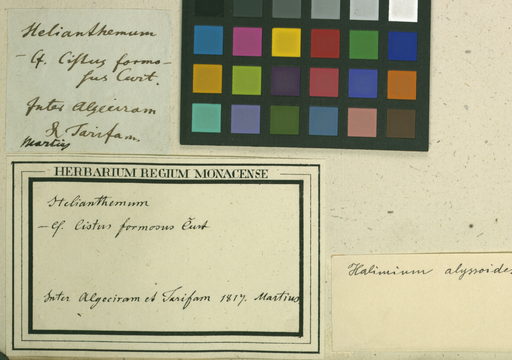 Helianthemum
– Cf. Cistus formo-
sus Curt.
Inter Algeciram
& Tarifam.
Martius
HERBARIUM REGIUM MONACENSE
Helianthemum
– Cf. Cistus formosus Curt
Inter Algeciram et Tarifam 1817. Martius
Halimium alyssoides